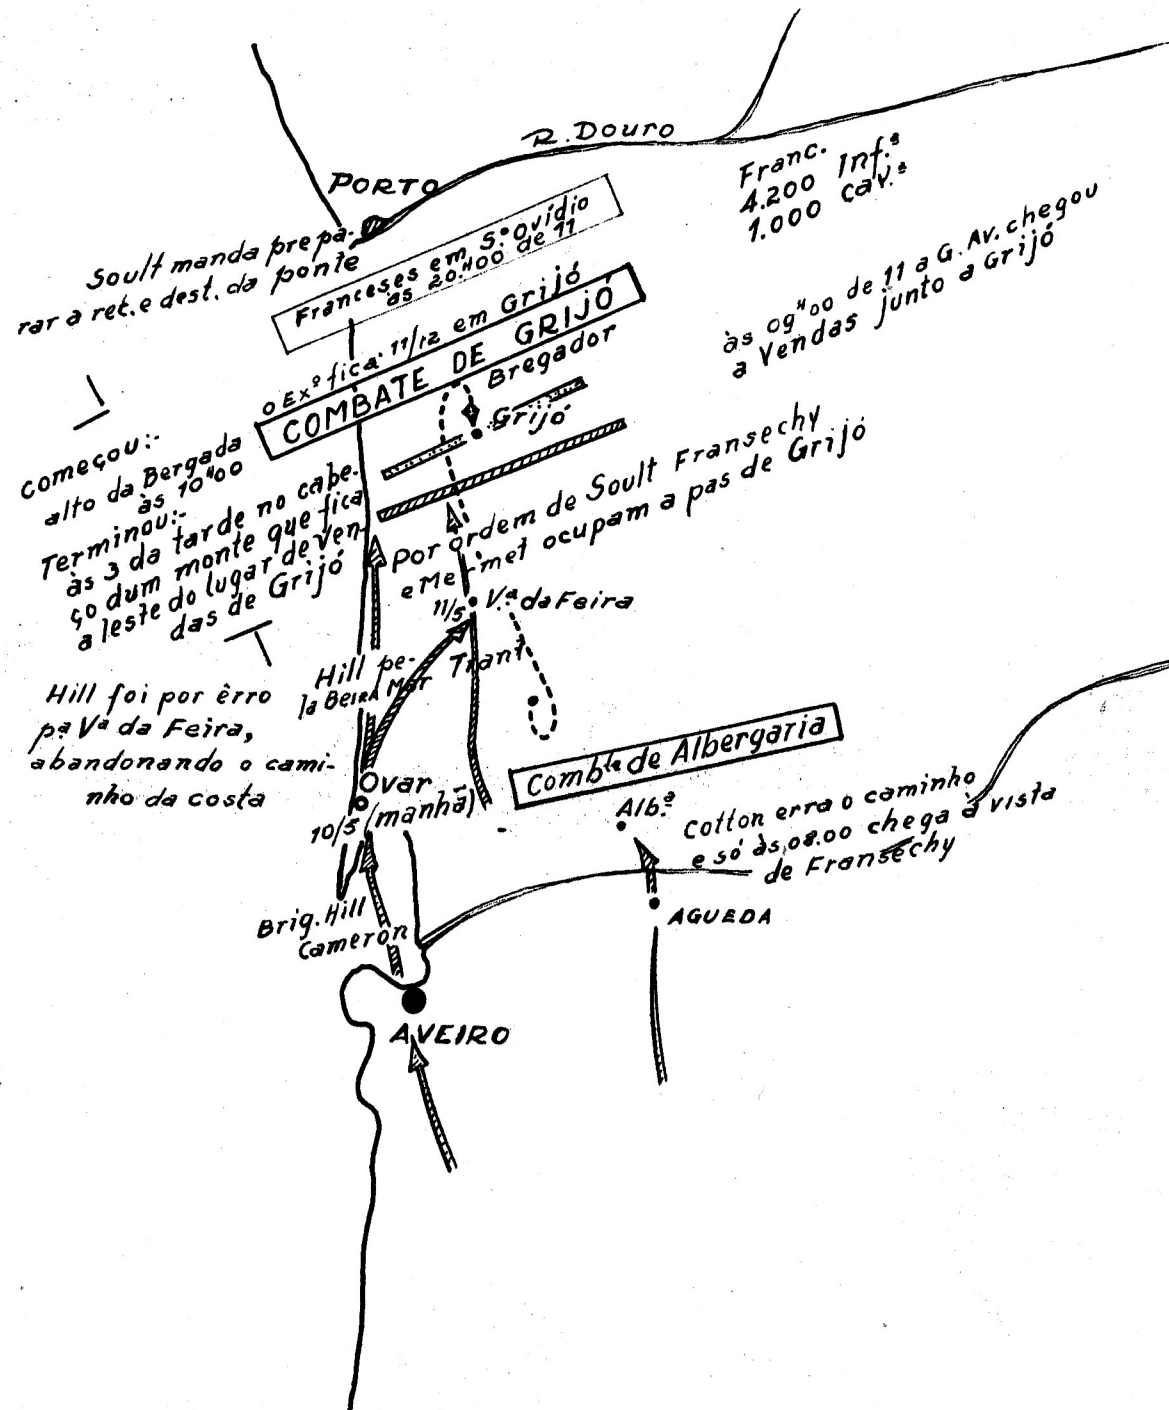 R. Douro
PORTO
Franc.
4.200 Inf.ª
1.000 cav.ª
Soult manda prepa-
rar a ret. e dest. da ponte
Franceses em S.º Ovídio
às 20.H00 de 11
o Exº fica 11/12 em Grijó
COMBATE DE GRIJÓ
às 09H00 de 11 a G. Av. chegou
a Vendas junto a Grijó
Bregador
Grijó
começou:-
alto da Bergada
às 10H00
Terminou:-
às 3 da tarde no cabe-
ço dum monte que fica
a leste do lugar de Ven-
das de Grijó
Por ordem de Soult Fransechy
e Mermet ocupam a pas de Grijó
11/5
Vª da Feira
Hill pe-
la Beira Mar
Trant
Hill foi por êrro
pª Vª da Feira,
abandonando o cami-
nho da costa
Ovar
10/5 (manhã)
Combte de Albergaria
Alb.ª
Cotton erra o caminho
e só às 08.00 chega à vista
de Fransechy
AGUEDA
Brig. Hill
Cameron
AVEIRO